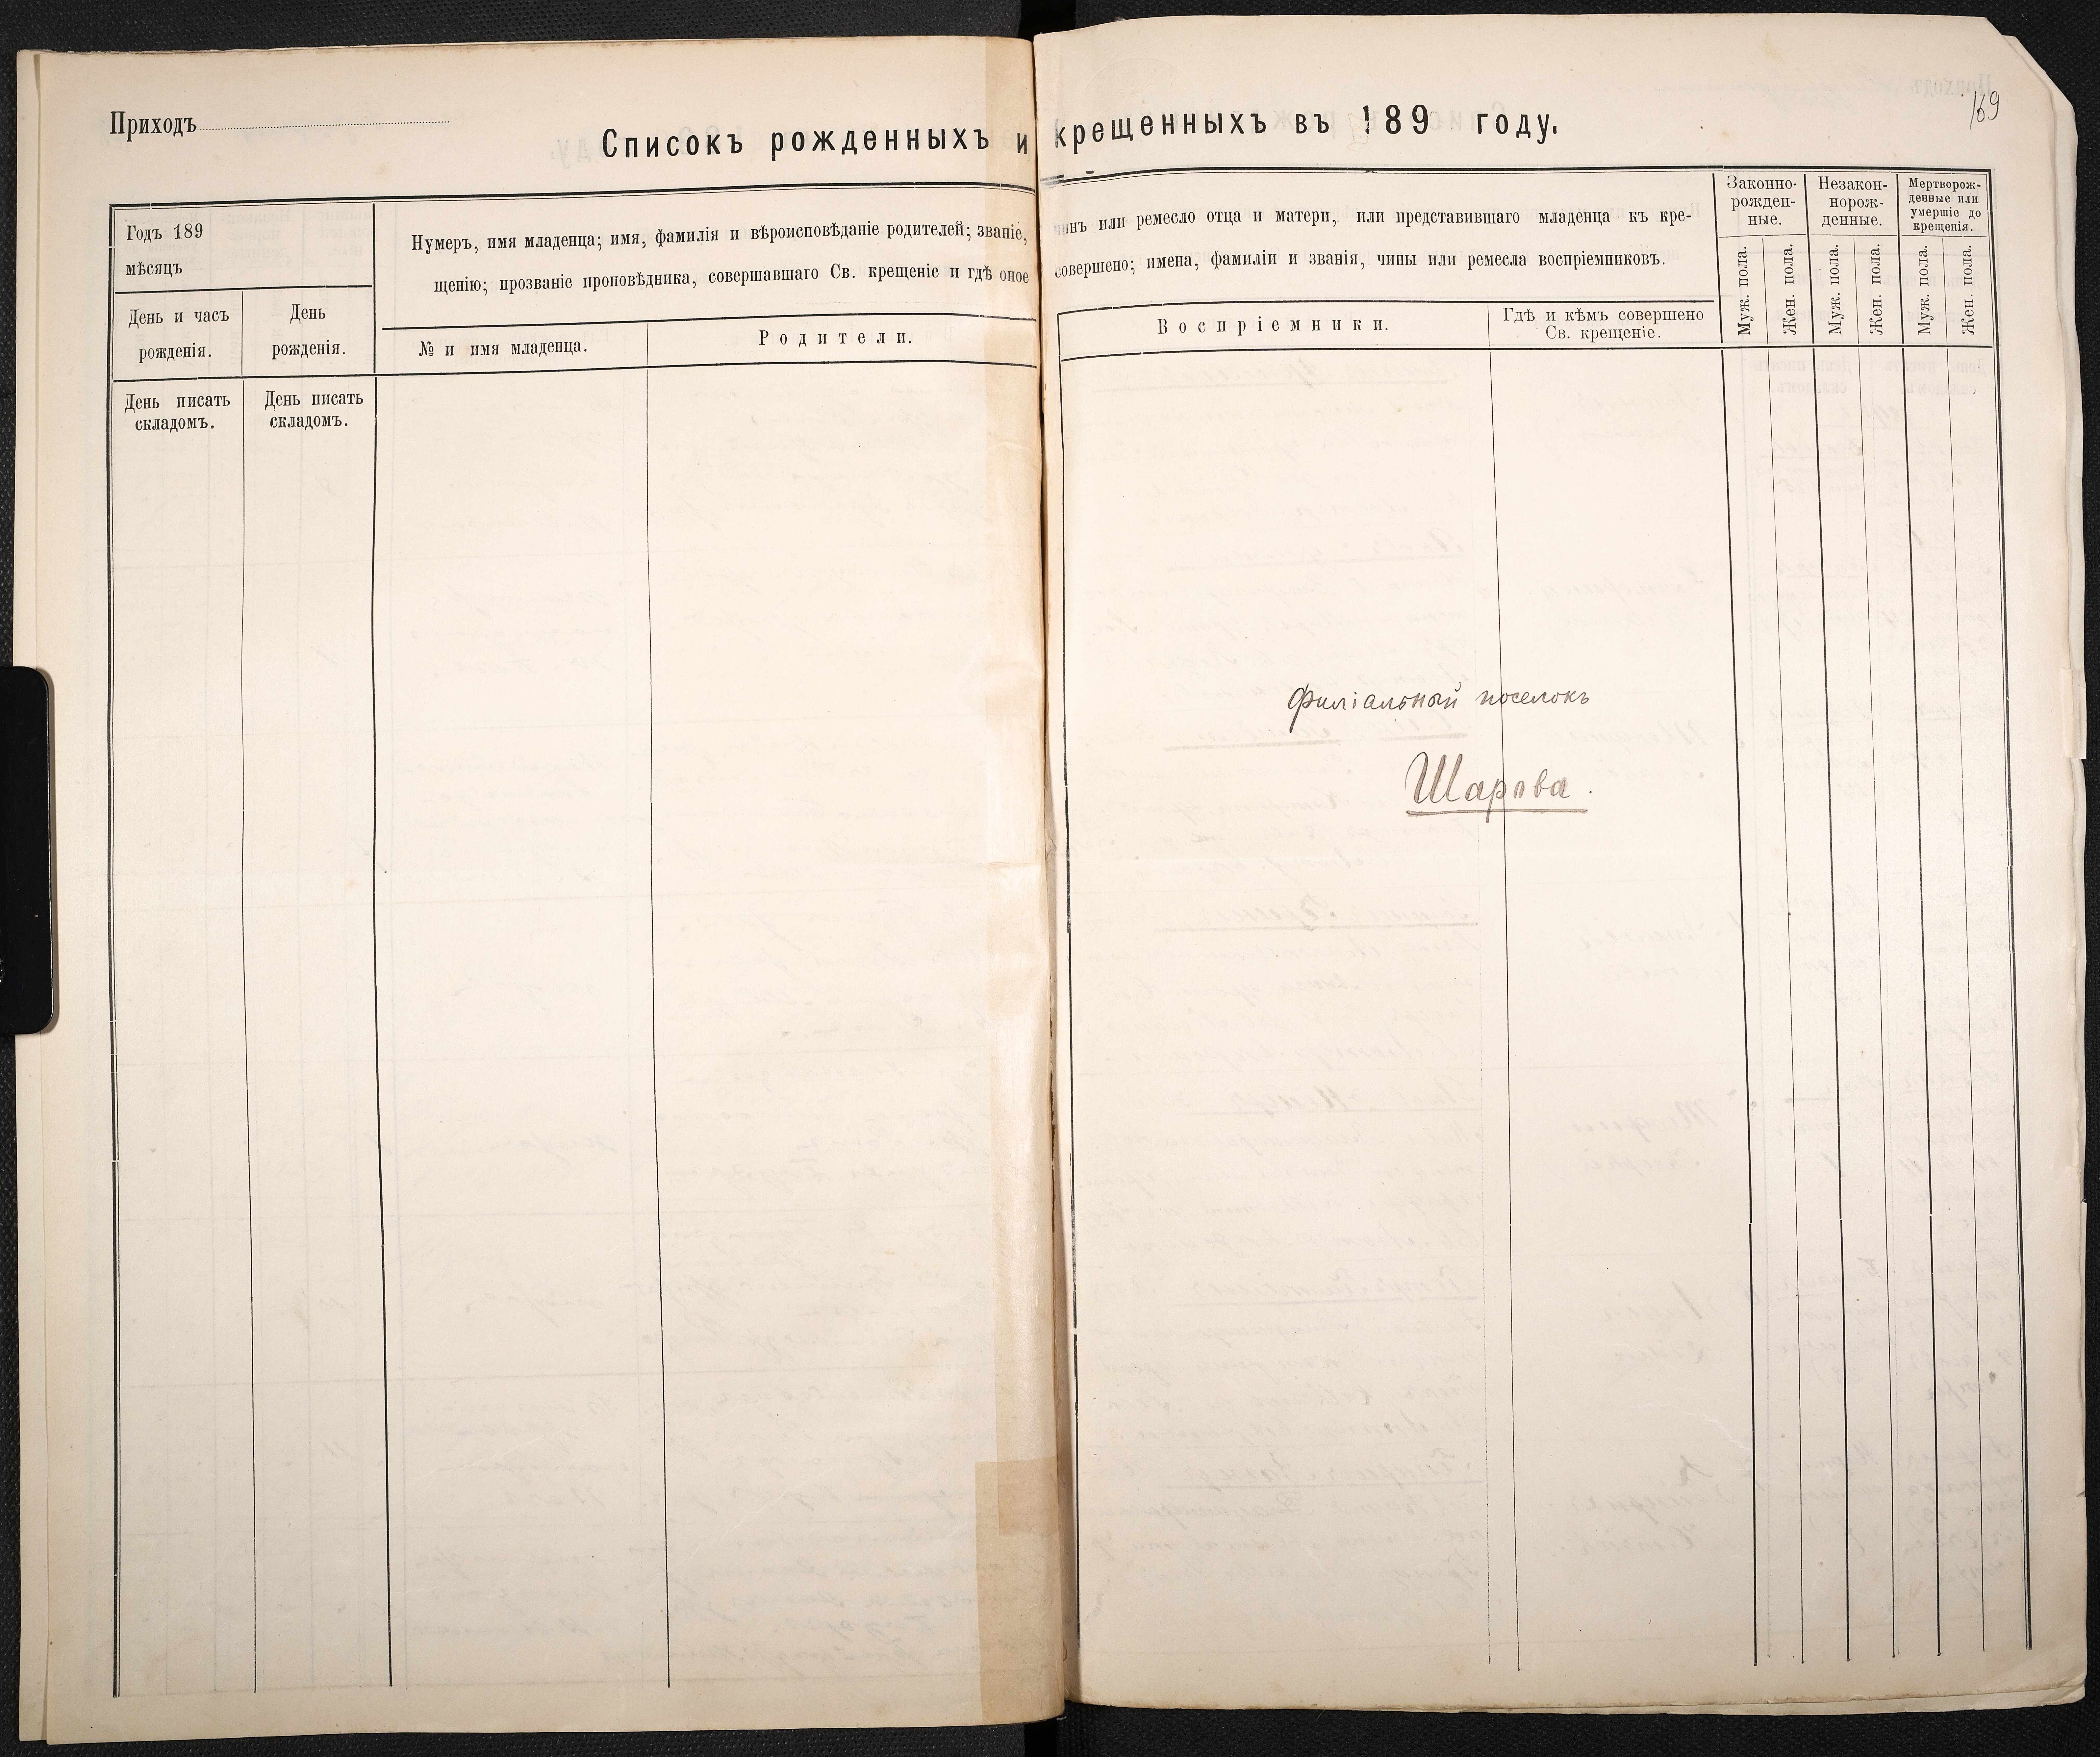 169
Приходъ
Списокъ рожденныхъ и крещенныхъ въ 189 году.
Годъ 189
мѣсяцъ
День и часъ
рожденія.
День
рожденія.
Нумеръ, имя младенца; имя, фамилія и вѣроисповѣданіе родителей; званіе, чинъ или ремесло отца и матери, или представившаго младенца къ кре-
щенію; прозваніе проповѣдника, совершавшаго Св. крещеніе и гдѣ оное совершено; имена, фамиліи и званія, чины или ремесла воспріемниковъ.
№ и имя младенца.
Родители.
Воспріемники.
Гдѣ и кѣмъ совершено
Св. крещеніе.
Законно-
рожден-
ные.
Незакон-
норож-
денные.
Мертворож-
денные или
умершіе до
крещенія.
Муж. пола.
Жен. пола.
Муж. пола.
Жен. пола.
Муж. пола.
Жен. пола.
День писать
складомъ.
День писать
складомъ.
Филіальный поселокъ
Шарова.